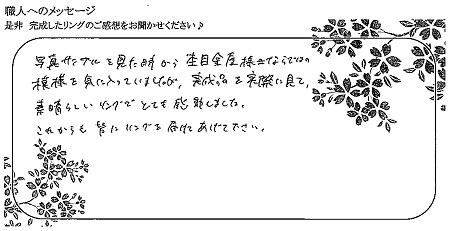 職人へのメッセージ
是非 完成したリングのご感想をお聞かせください♪
写真サンプルを見た時から杢目金屋様ならではの
模様を気に入っていましたが、完成品を実際に見て、
素晴らしいリングでとても感動しました。
これからも皆にリングを届けてあげて下さい。